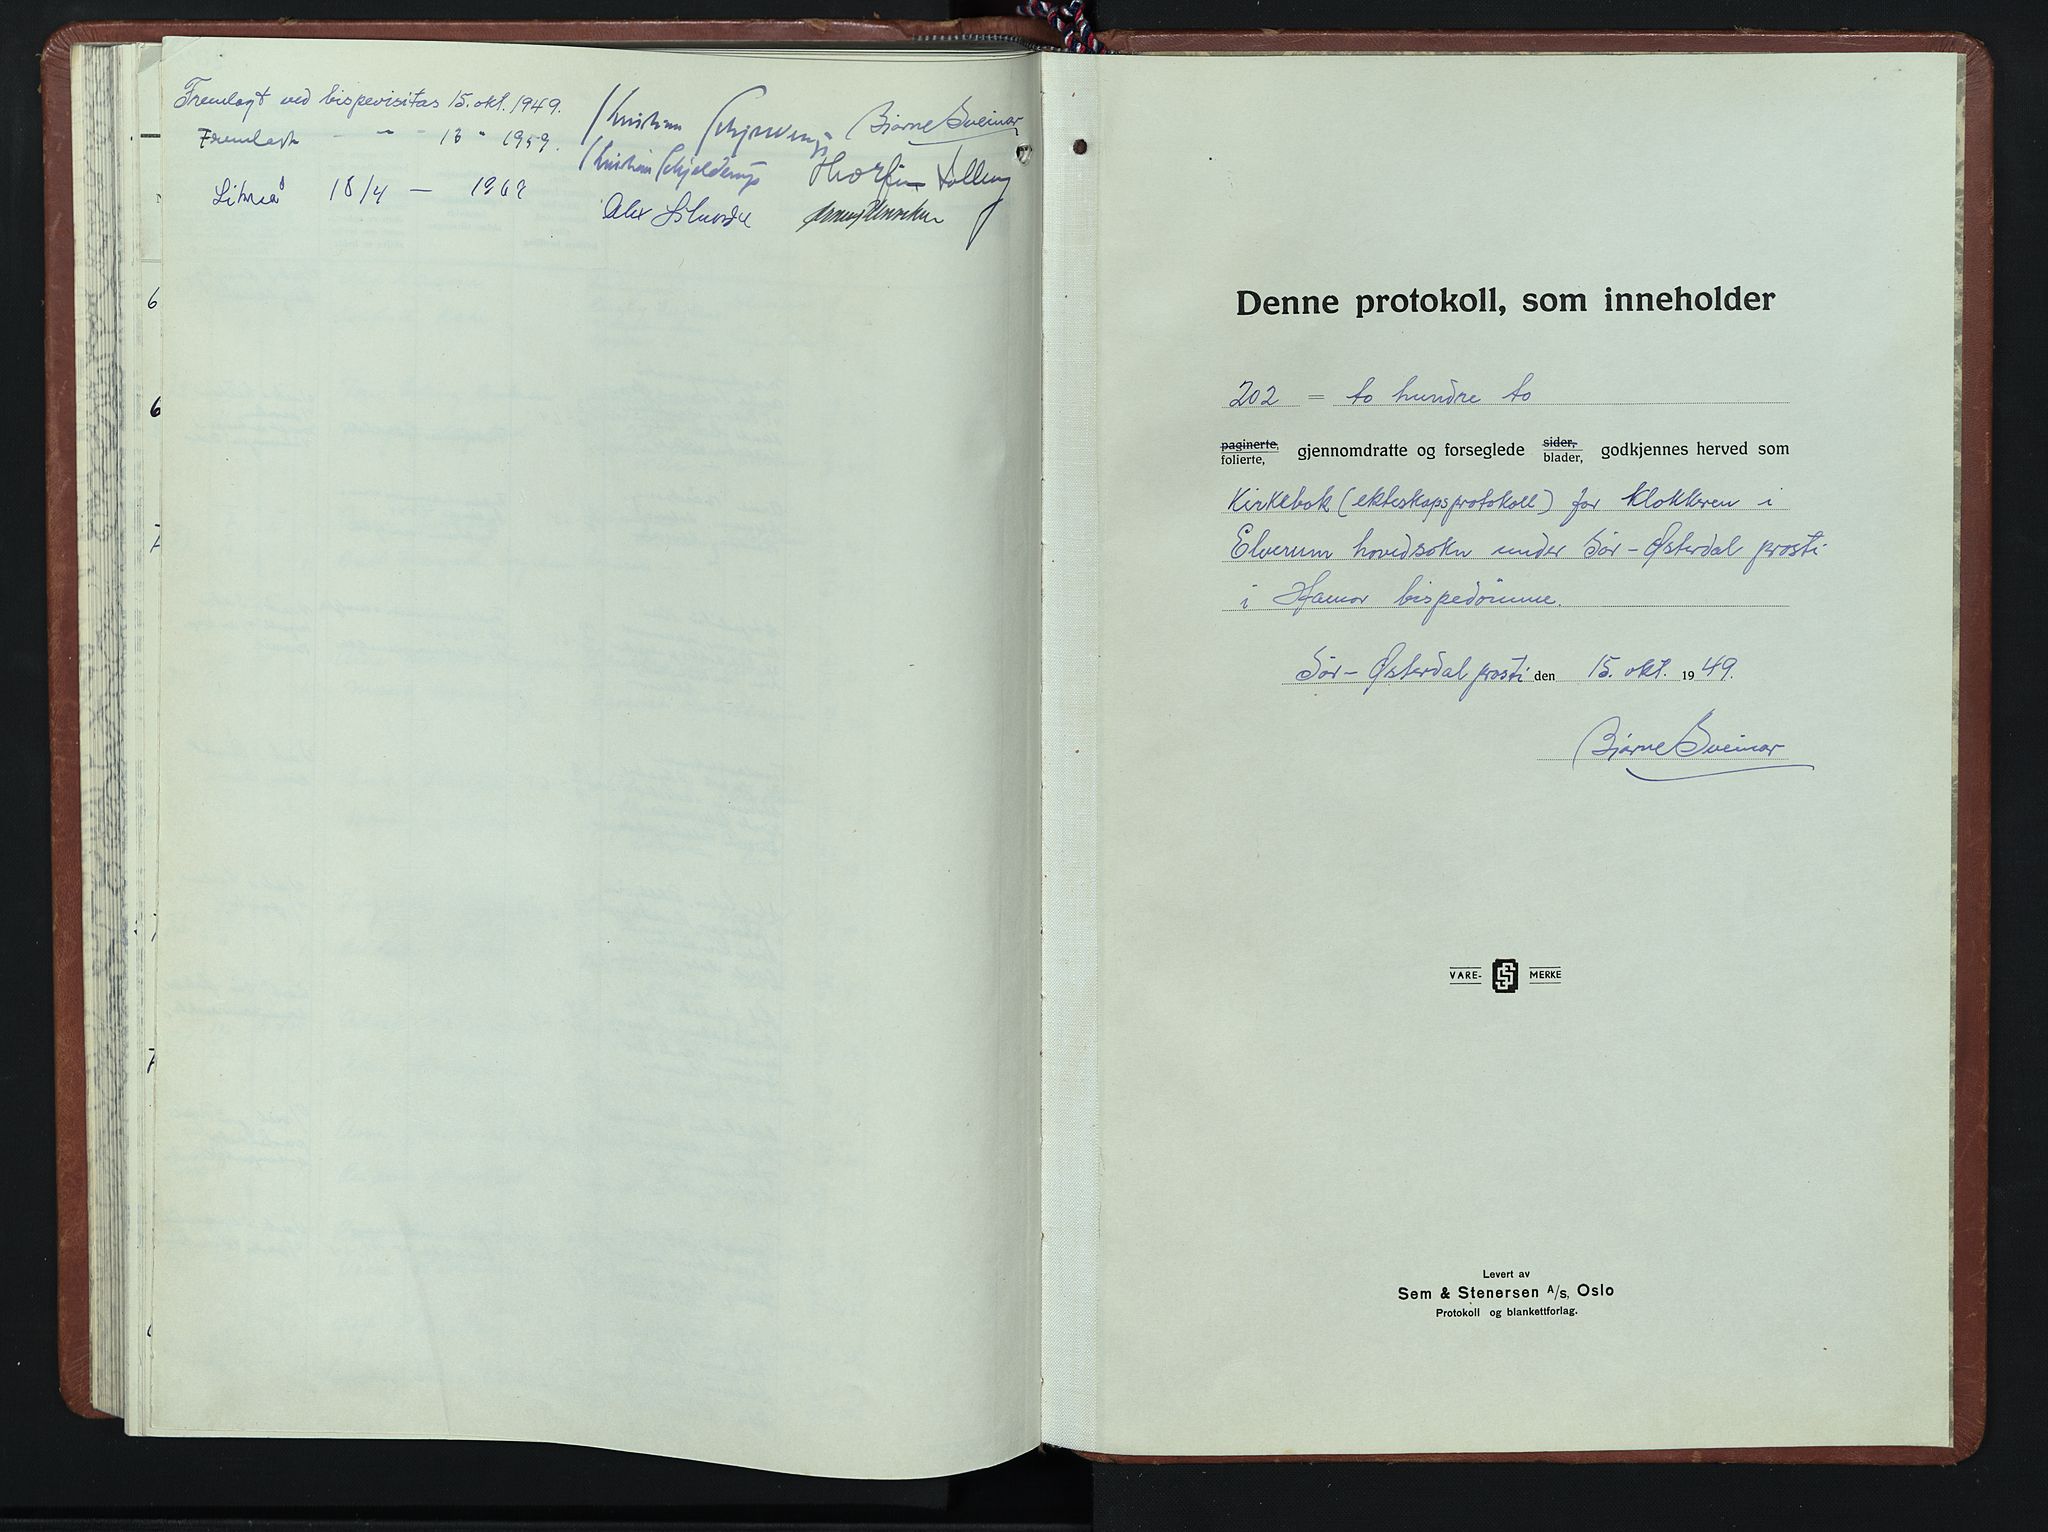 Fremlagt ved bispevisitas 15. okt. 1949. Kristian Schjelderup Bjarne Sveinar
Fremlagt - " - 13 " 1959. Kristian Schjelderup Thorfinn
18/4 — 1967 Alex
6
6
7
7
7
Denne protokoll, som inneholder
202 = to hundre to
paginerte, folierte, gjennomdratte og forseglede sider, blader, godkjennes herved som
Kirkebok (ekteskapsprotokoll) for klokkeren i
Elverum hovedsokn under Sør-Østerdal prosti
i Hamar bispedømme.
Sør-Østerdal prosti den 15. okt. 1949.
Bjarne Sveinar
VARE- SS MERKE
Levert av
Sem & Stenersen A/s, Oslo
Protokoll og blankettforlag.